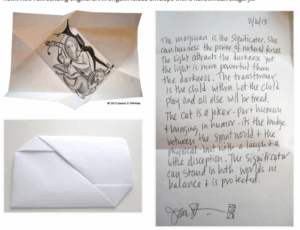 The magician is the significator. She
can harness the power of natural forces
the light attracts the darkness yet
the light is more powerful than
the darkness. The transformer
is the child within. Let the child
play and all else will be freed.
The cat is a joker - part human
+ bringing in humor - its the bridge
between the spirit world + the
physical but with a laugh + a
little disception. The significator
can stand in both worlds in
balance + is protected.